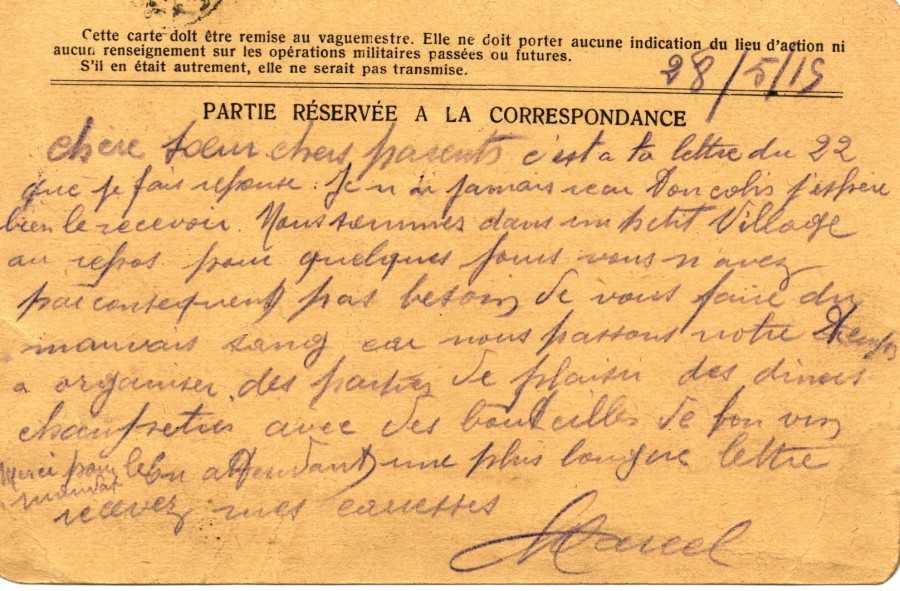 Cette carte doit être remise au vaguemestre. Elle ne doit porter aucune indication du lieu d'action ni
aucun renseignement sur les opérations militaires passées ou futures.
S'il en était autrement, elle ne serait pas transmise.
28/5/15
PARTIE RÉSERVÉE A LA CORRESPONDANCE
Chère soeur chers parents c'est a ta lettre du 22
que je fais reponse. Je n ai jamais recu ton colis j'espère
bien le recevoir. Nous sommes dans un petit Village
au repos pour quelques jours vous n'avez
par consequent pas besoin de vous faire du
mauvais sang car nous passons notre temps
a organiser des parties de plaisir des diners
champetres avec des bouteilles de bon vin
Merci pour le mandat
En attendant une plus longue lettre
recevez mes caresses
Marcel